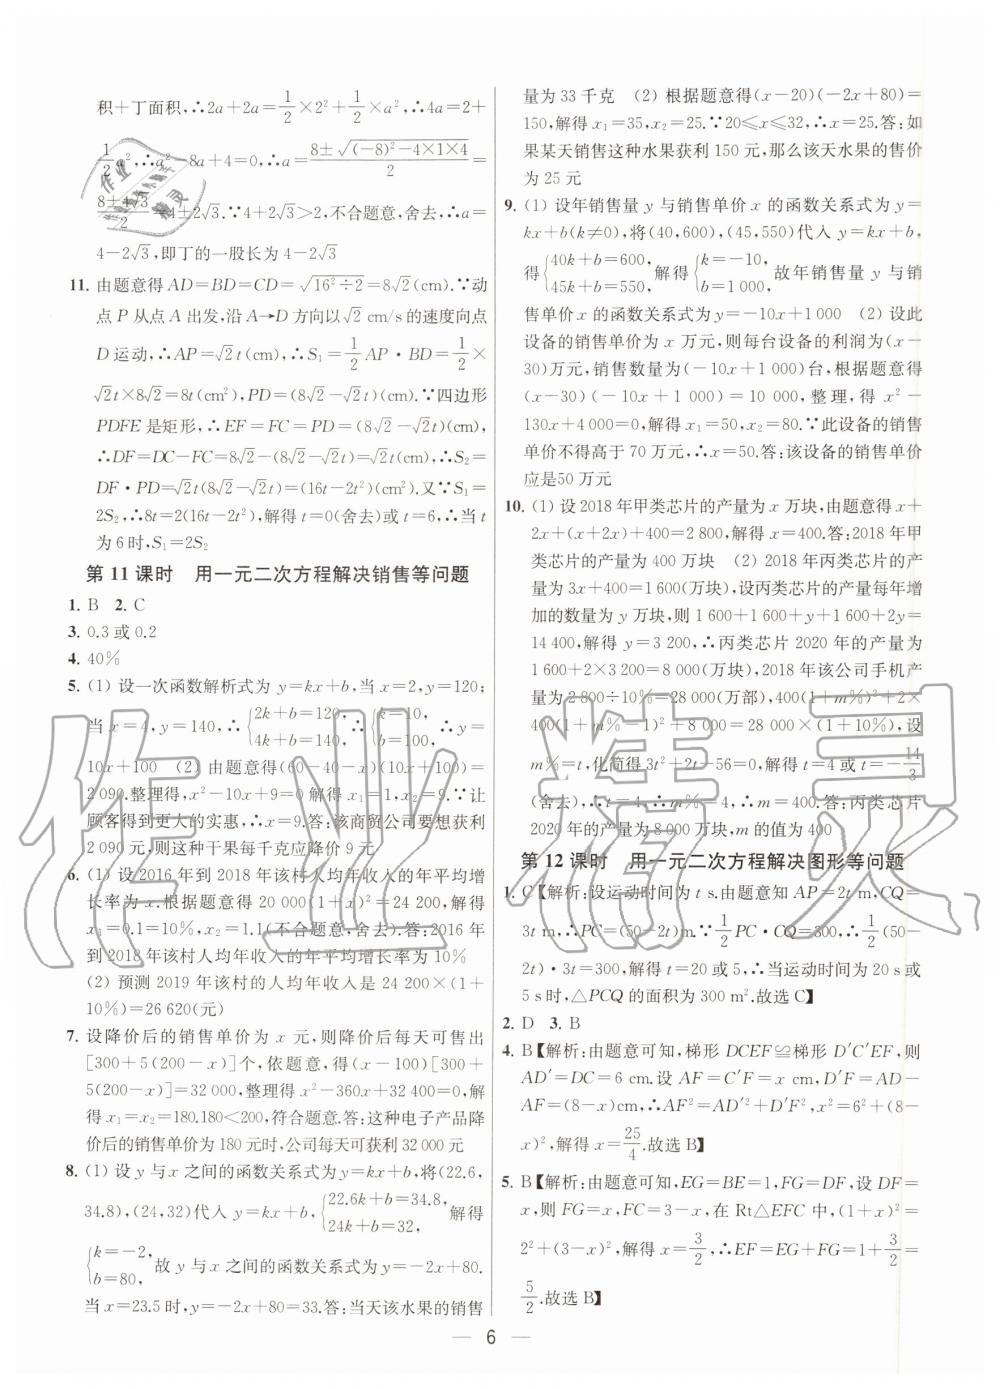 积+丁面积,∴2a+2a=1/2×2²+1/2×a²,∴4a=2+
1/2a²,∴a²-8a+4=0,∴a=(8±√((-8)²-4×1×4))/2=
(8±4√3)/2=4±2√3.∵4+2√3>2,不合题意,舍去,∴a=
4-2√3,即丁的一股长为4-2√3
11. 由题意得AD=BD=CD=√(16²÷2)=8√2(cm).∵动
点P从点A出发,沿A→D方向以√2 cm/s的速度向点
D运动,∴AP=√2t(cm),∴S₁=1/2AP·BD=1/2×
√2t×8√2=8t(cm²),PD=(8√2-√2t)(cm).∵四边形
PDFE是矩形,∴EF=FC=PD=(8√2-√2t)(cm),
∴DF=DC-FC=8√2-(8√2-√2t)=√2t(cm),∴S₂=
DF·PD=√2t(8√2-√2t)=(16t-2t²)(cm²).又∵S₁=
2S₂,∴8t=2(16t-2t²),解得t=0(舍去)或t=6,∴当t
为6时,S₁=2S₂
第11课时 用一元二次方程解决销售等问题
1. B 2. C
3. 0.3或0.2
4. 40%
5. (1) 设一次函数解析式为y=kx+b,当x=2,y=120;
当x=4,y=140,∴{2k+b=120, 4k+b=140,∴{k=10, b=100,∴y=
10x+100 (2) 由题意得(60-40-x)(10x+100)=
2 090.整理得,x²-10x+9=0 解得x₁=1,x₂=9.∵让
顾客得到更大的实惠,∴x=9.答:该商贸公司要想获利
2 090元,则这种干果每千克应降价9元
6. (1) 设2016年到2018年该村人均年收入的年平均增
长率为x.根据题意得20 000(1+x)²=24 200,解得
x₁=0.1=10%,x₂=1.1(不合题意,舍去).答:2016年
到2018年该村人均年收入的年平均增长率为10%
(2) 预测2019年该村的人均年收入是24 200×(1+
10%)=26 620(元)
7. 设降价后的销售单价为x元,则降价后每天可售出
[300+5(200-x)]个,依题意,得(x-100)[300+
5(200-x)]=32 000,整理得x²-360x+32 400=0,解
得x₁=x₂=180.180<200,符合题意.答:这种电子产品降
价后的销售单价为180元时,公司每天可获利32 000元
8. (1) 设y与x之间的函数关系式为y=kx+b,将(22.6,
34.8),(24,32)代入y=kx+b,{22.6k+b=34.8, 24k+b=32,解得
{k=-2, b=80,故y与x之间的函数关系式为y=-2x+80.
当x=23.5时,y=-2x+80=33.答:当天该水果的销售
量为33千克 (2) 根据题意得(x-20)(-2x+80)=
150,解得x₁=35,x₂=25.∵20≤x≤32,∴x=25.答:如
果某天销售这种水果获利150元,那么该天水果的售价
为25元
9. (1) 设年销售量y与销售单价x的函数关系式为y=
kx+b(k≠0),将(40,600),(45,550)代入y=kx+b,
得{40k+b=600, 45k+b=550,解得{k=-10, b=1 000,故年销售量y与销
售单价x的函数关系式为y=-10x+1 000 (2) 设此
设备的销售单价为x万元,则每台设备的利润为(x-
30)万元,销售数量为(-10x+1 000)台,根据题意得
(x-30)(-10x+1 000)=10 000,整理,得x²-
130x+4 000=0,解得x₁=50,x₂=80.∵此设备的销售单价
不得高于70万元,∴x=50.答:该设备的销售单价
应是50万元
10. (1) 设2018年甲类芯片的产量为x万块,由题意得x+
2x+(x+2x)+400=2 800,解得x=400.答:2018年甲
类芯片的产量为400万块 (2) 2018年丙类芯片的产
量为3x+400=1 600(万块),设丙类芯片的产量每年增
加的数量为y万块,则1 600+1 600+y+1 600+2y=
14 400,解得y=3 200,∴丙类芯片2020年的产量为
1 600+2×3 200=8 000(万块),2018年该公司手机产
量为2 800÷10%=28 000(万部),400(1+m%)²+2×
400(1+m%-1)²+8 000=28 000×(1+10%),设
m%=t,化简得3t²+2t-56=0,解得t=4或t=-14/3
(舍去),∴t=4,∴m%=4,∴m=400.答:丙类芯片
2020年的产量为8 000万块,m的值为400
第12课时 用一元二次方程解决图形等问题
1. C【解析:设运动时间为t s.由题意知AP=2t m,CQ=
3t m,∴PC=(50-2t)m.∵1/2PC·CQ=300,∴1/2(50-
2t)·3t=300,解得t=20或5,∴当运动时间为20 s或
5 s时,△PCQ的面积为300 m².故选C】
2. D 3. B
4. B【解析:由题意可知,梯形DCEF≌梯形D′C′EF,则
AD′=DC=6 cm.设AF=C′F=x cm,D′F=AD-
AF=(8-x)cm,∴AF²=AD′²+D′F²,x²=6²+(8-
x)²,解得x=25/4.故选B】
5. B【解析:由题意可知,EG=BE=1,FG=DF,设DF=
x,则FG=x,FC=3-x,在Rt△EFC中,(1+x)²=
2²+(3-x)²,解得x=3/2,∴EF=EG+FG=1+3/2=
5/2.故选B】
6
作业精灵